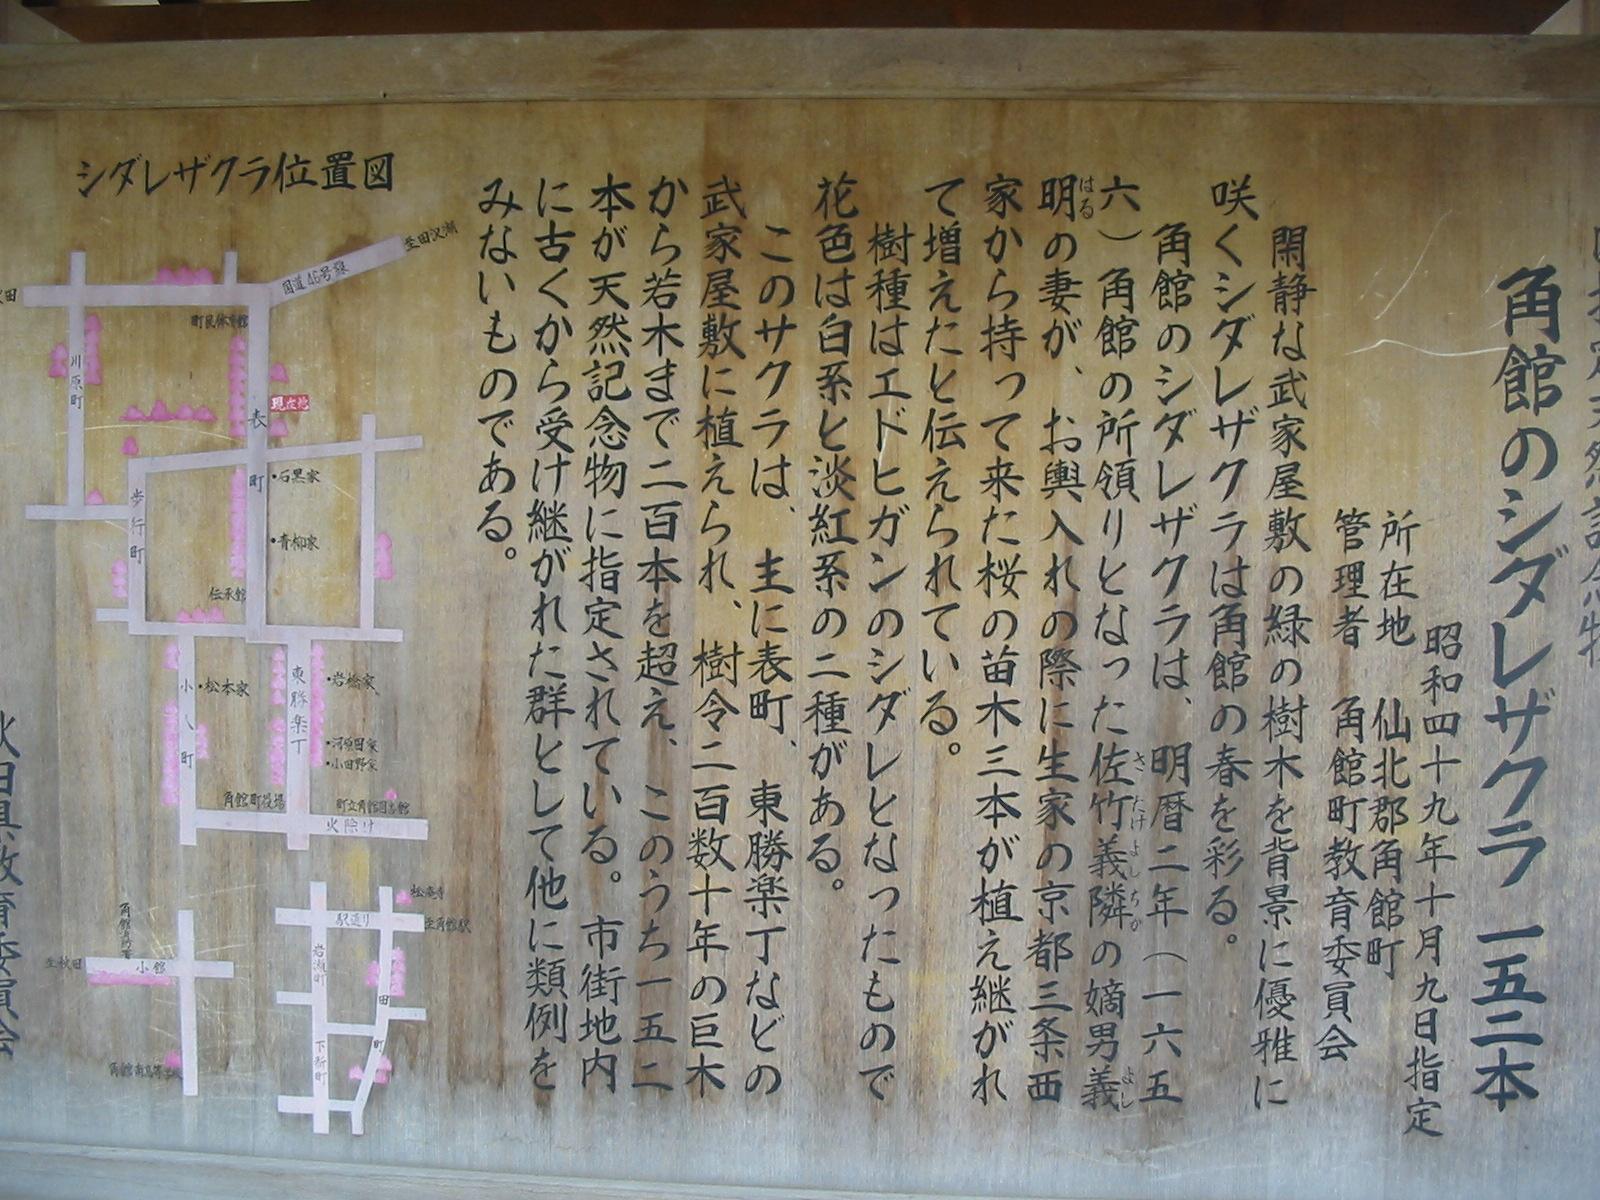 角館のシダレザクラ 一五二本
昭和四十九年十月九日指定
所在地 仙北郡角館町
管理者 角館町教育委員会
閑静な武家屋敷の緑の樹木を背景に優雅に
咲くシダレザクラは角館の春を彩る。
角館のシダレザクラは、明暦二年（一六五
六）角館の所領りとなった佐竹義隣の嫡男義
さたけよしちか
よし
明の妻が、お輿入れの際に生家の京都三条西
はる
家から持って来た桜の苗木三本が植え継がれ
て増えたと伝えられている。
樹種はエドヒガンのシダレとなったもので
花色は白系と淡紅系の二種がある。
このサクラは、主に表町、東勝楽丁などの
武家屋敷に植えられ、樹令二百数十年の巨木
から若木まで二百本を超え、このうち一五二
本が天然記念物に指定されている。市街地内
に古くから受け継がれた群として他に類例を
みないものである。
シダレザクラ位置図
至田沢湖
国道46号線
町民体育館
川原町
現在地
表町
石黒家
歩行町
青柳家
伝承館
小人町
松本家
東勝楽丁
岩橋家
河原田家
小田野家
角館町役場
町立角館図書館
火除け
松庵寺
駅通り
至角館駅
岩瀬町
至秋田
小館
田町
下新町
秋田県教育委員会